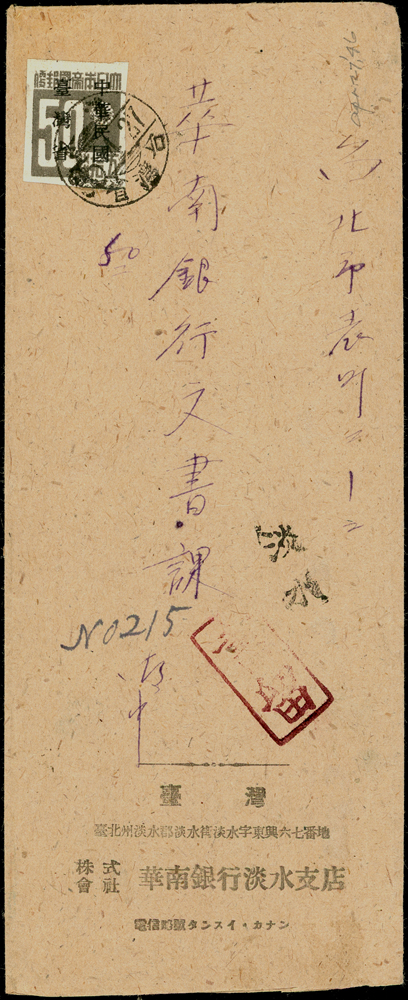 apr 27/46
北市表町二ノ二
華南銀行文書課
御中
50
50
中華民國
臺灣省
淡水
N0215
臺灣
臺北州淡水郡淡水街淡水字東興六七番地
株式會社 華南銀行淡水支店
電信略號タンスイ・カナン